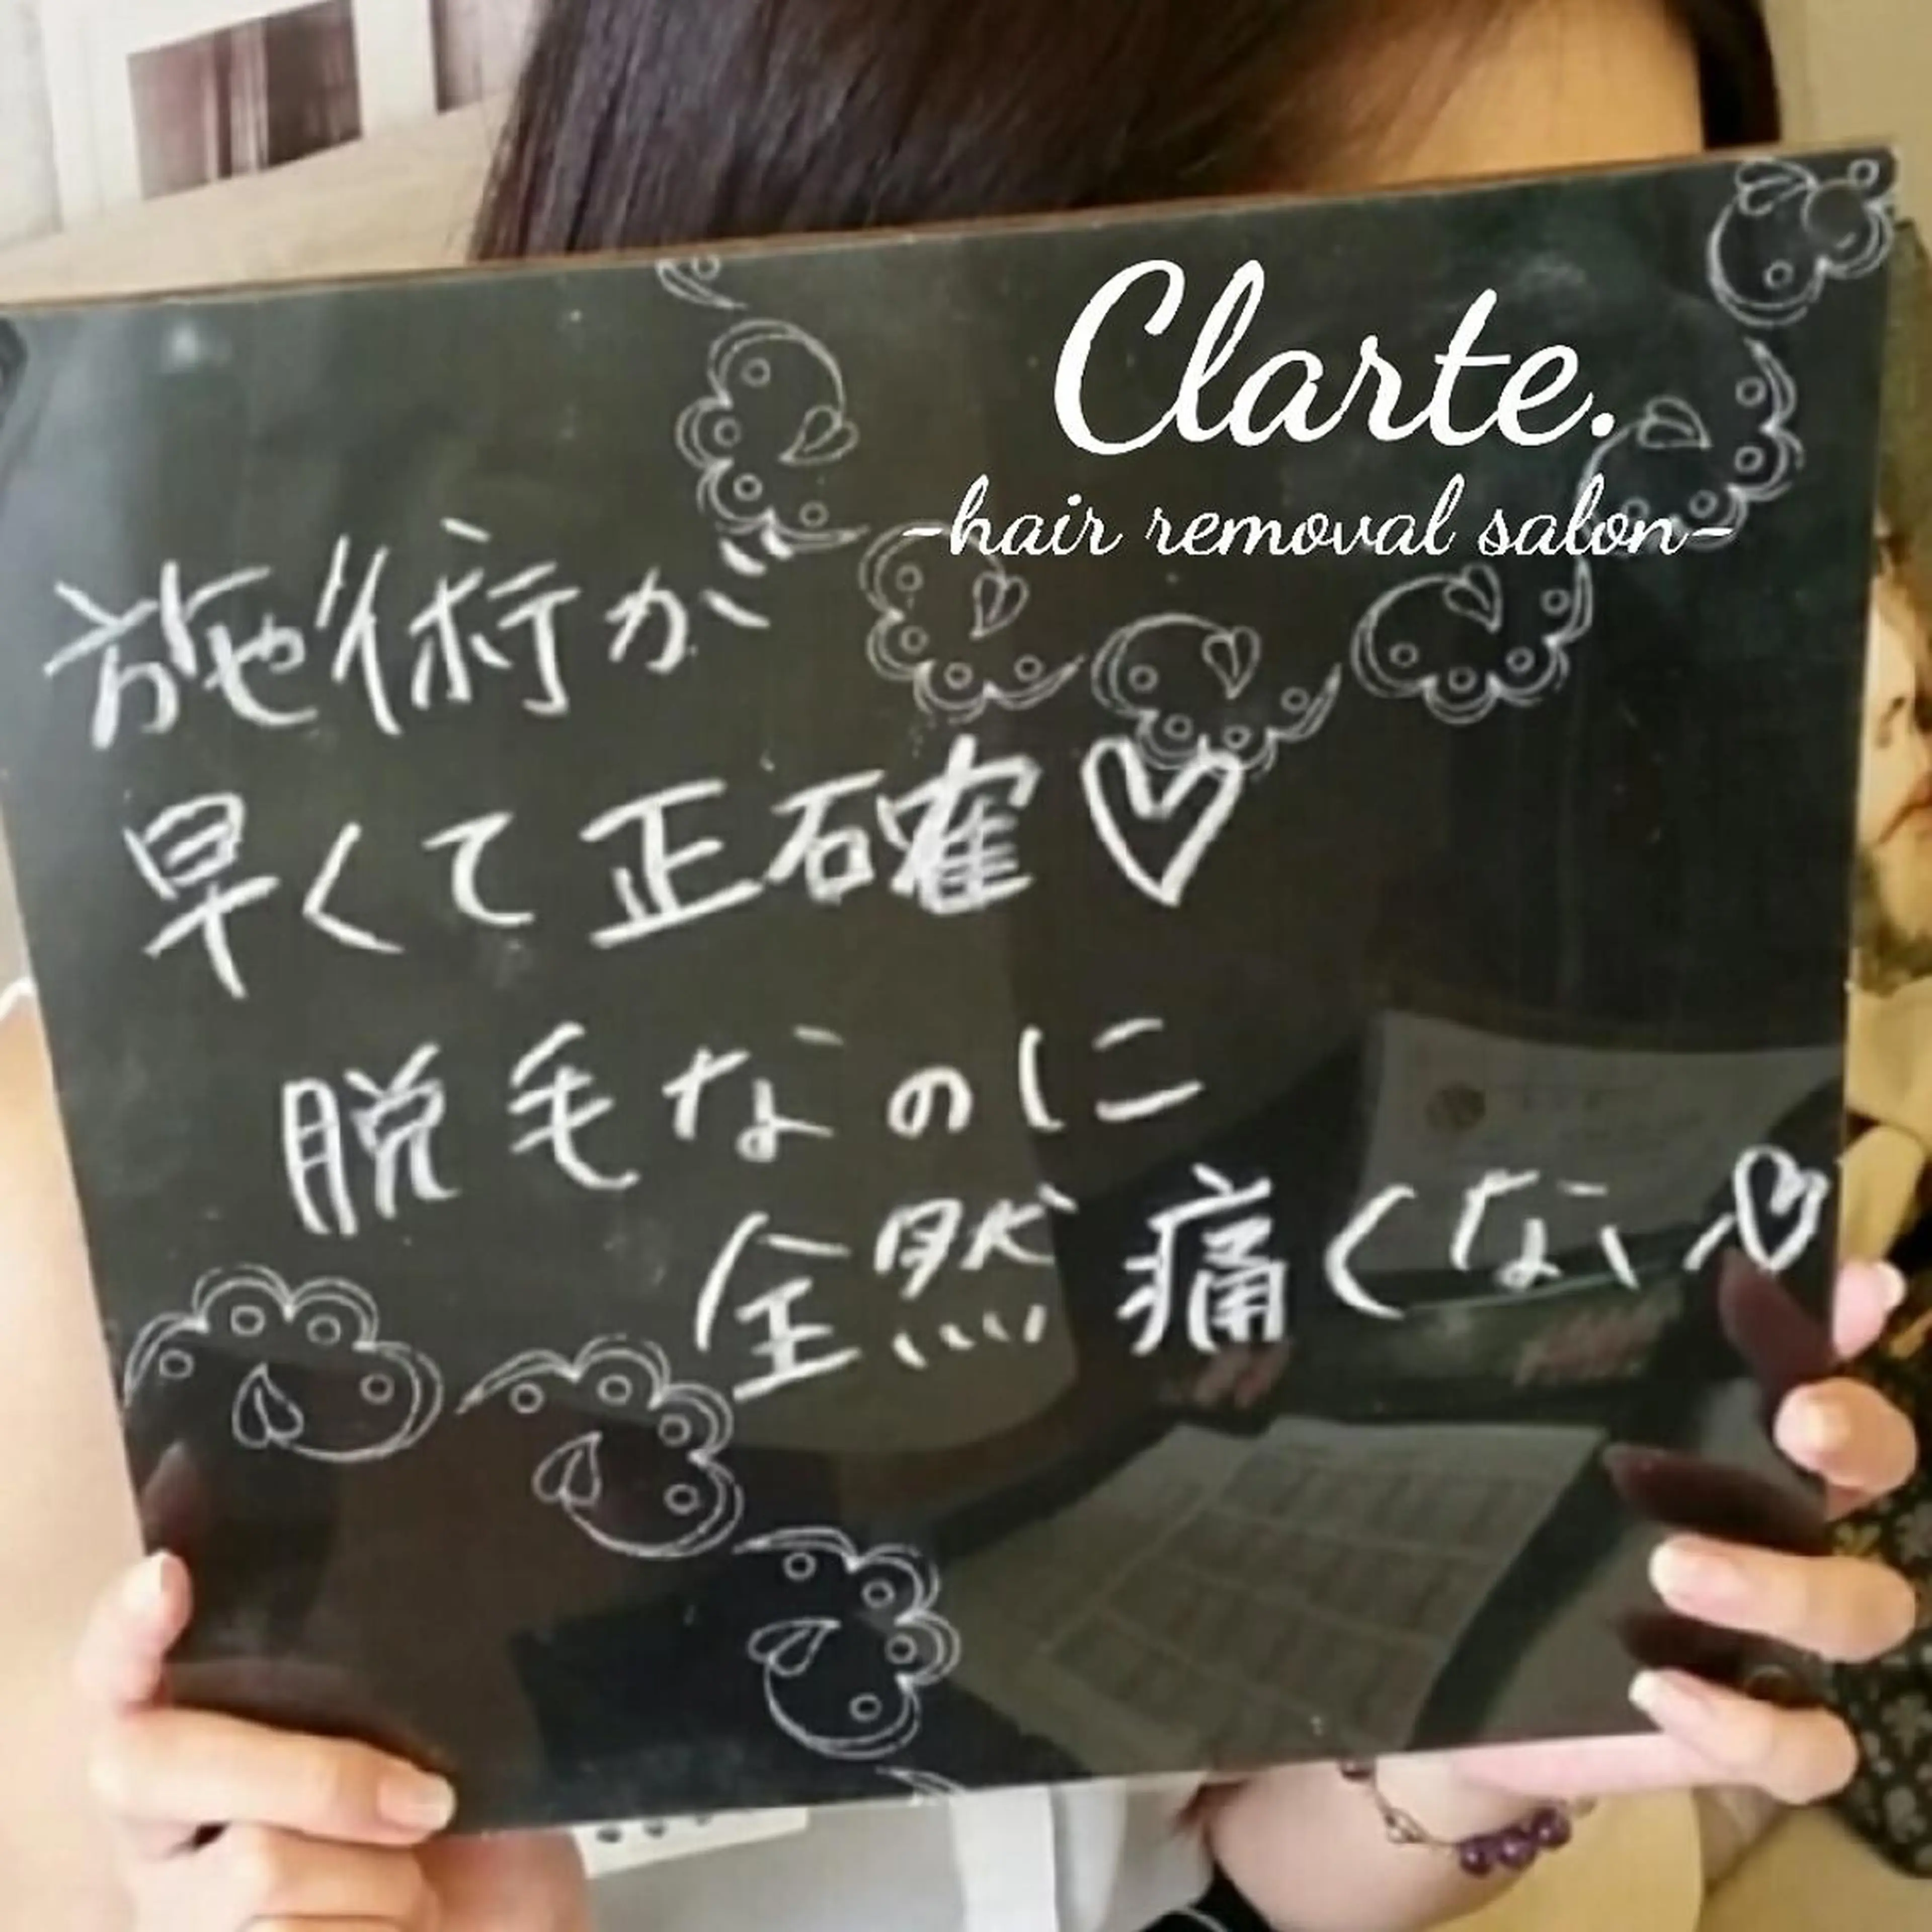 Clarte.
-hair removal salon-
施術が
早くて正確♡
脱毛なのに
全然痛くない♡